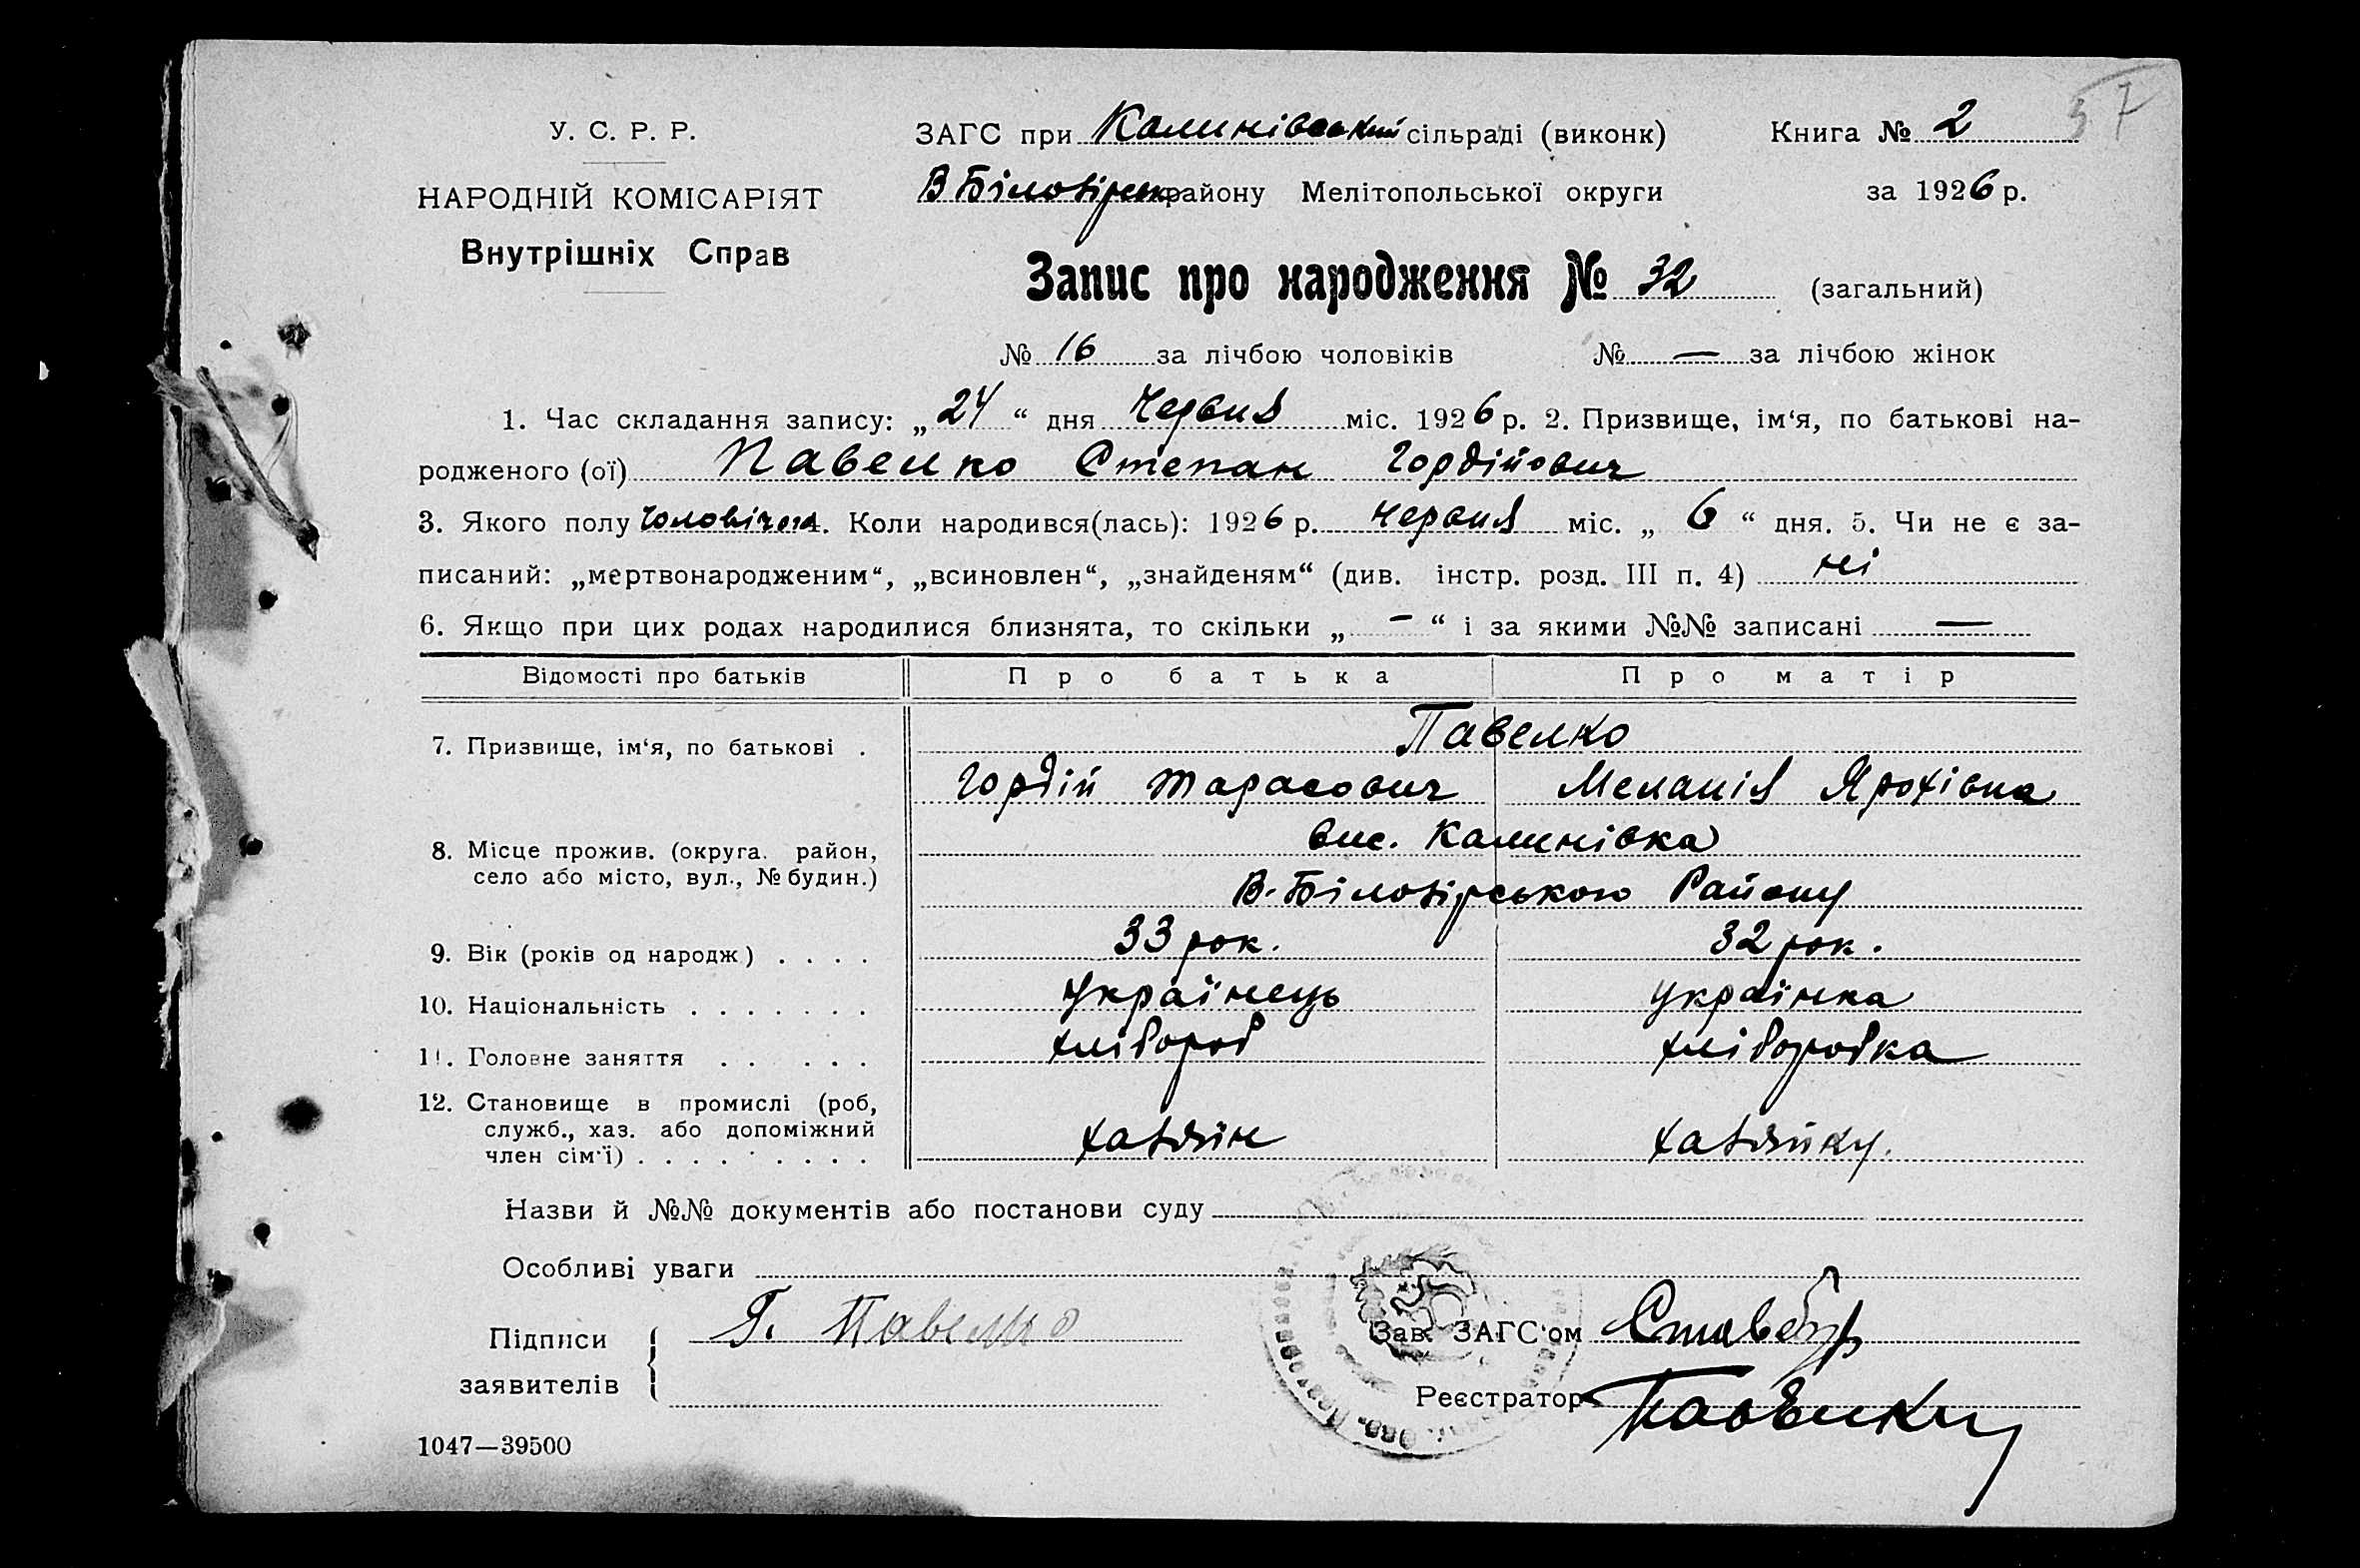 57
У. С. Р. Р.
НАРОДНІЙ КОМІСАРІЯТ
Внутрішніх Справ
ЗАГС при Калинівській сільраді (виконк) Книга № 2
В Білозірськ району Мелітопольської округи за 1926 р.
Запис про народження № 32 (загальний)
№ 16 за лічбою чоловіків № — за лічбою жінок
1. Час складання запису: „24“ дня Червня міс. 1926 р. 2. Призвище, ім‘я, по батькові на-
родженого (ої) Павелко Степан Гордійович
3. Якого полу чоловічого 4. Коли народився(лась): 1926 р. червня міс. „6“ дня. 5. Чи не є за-
писаний: „мертвонародженим“, „всиновлен“, „знайденям“ (див. інстр. розд. III п. 4) ні
6. Якщо при цих родах народилися близнята, то скільки „ - “ і за якими №№ записані —
Відомості про батьків Про батька Про матір
7. Призвище, ім‘я, по батькові . Павелко
Гордій Тарасович Меланія Ярохівна
8. Місце прожив. (округа. район, село або місто, вул., № будин.) вис. Калинівка
В-Білозірського Району
9. Вік (років од народж) . . . . 33 рок. 32 рок.
10. Національність . . . . . . . Українець Українка
11. Головне заняття . . . . . хлібороб хліборобка
12. Становище в промислі (роб,
служб., хаз. або допоміжний
член сім‘ї) . . . . . . . . . хазяїн хазяйку.
Назви й №№ документів або постанови суду
Особливі уваги
Підписи Г. Павелко Зав. ЗАГС‘ом
заявителів Реєстратор
1047—39500